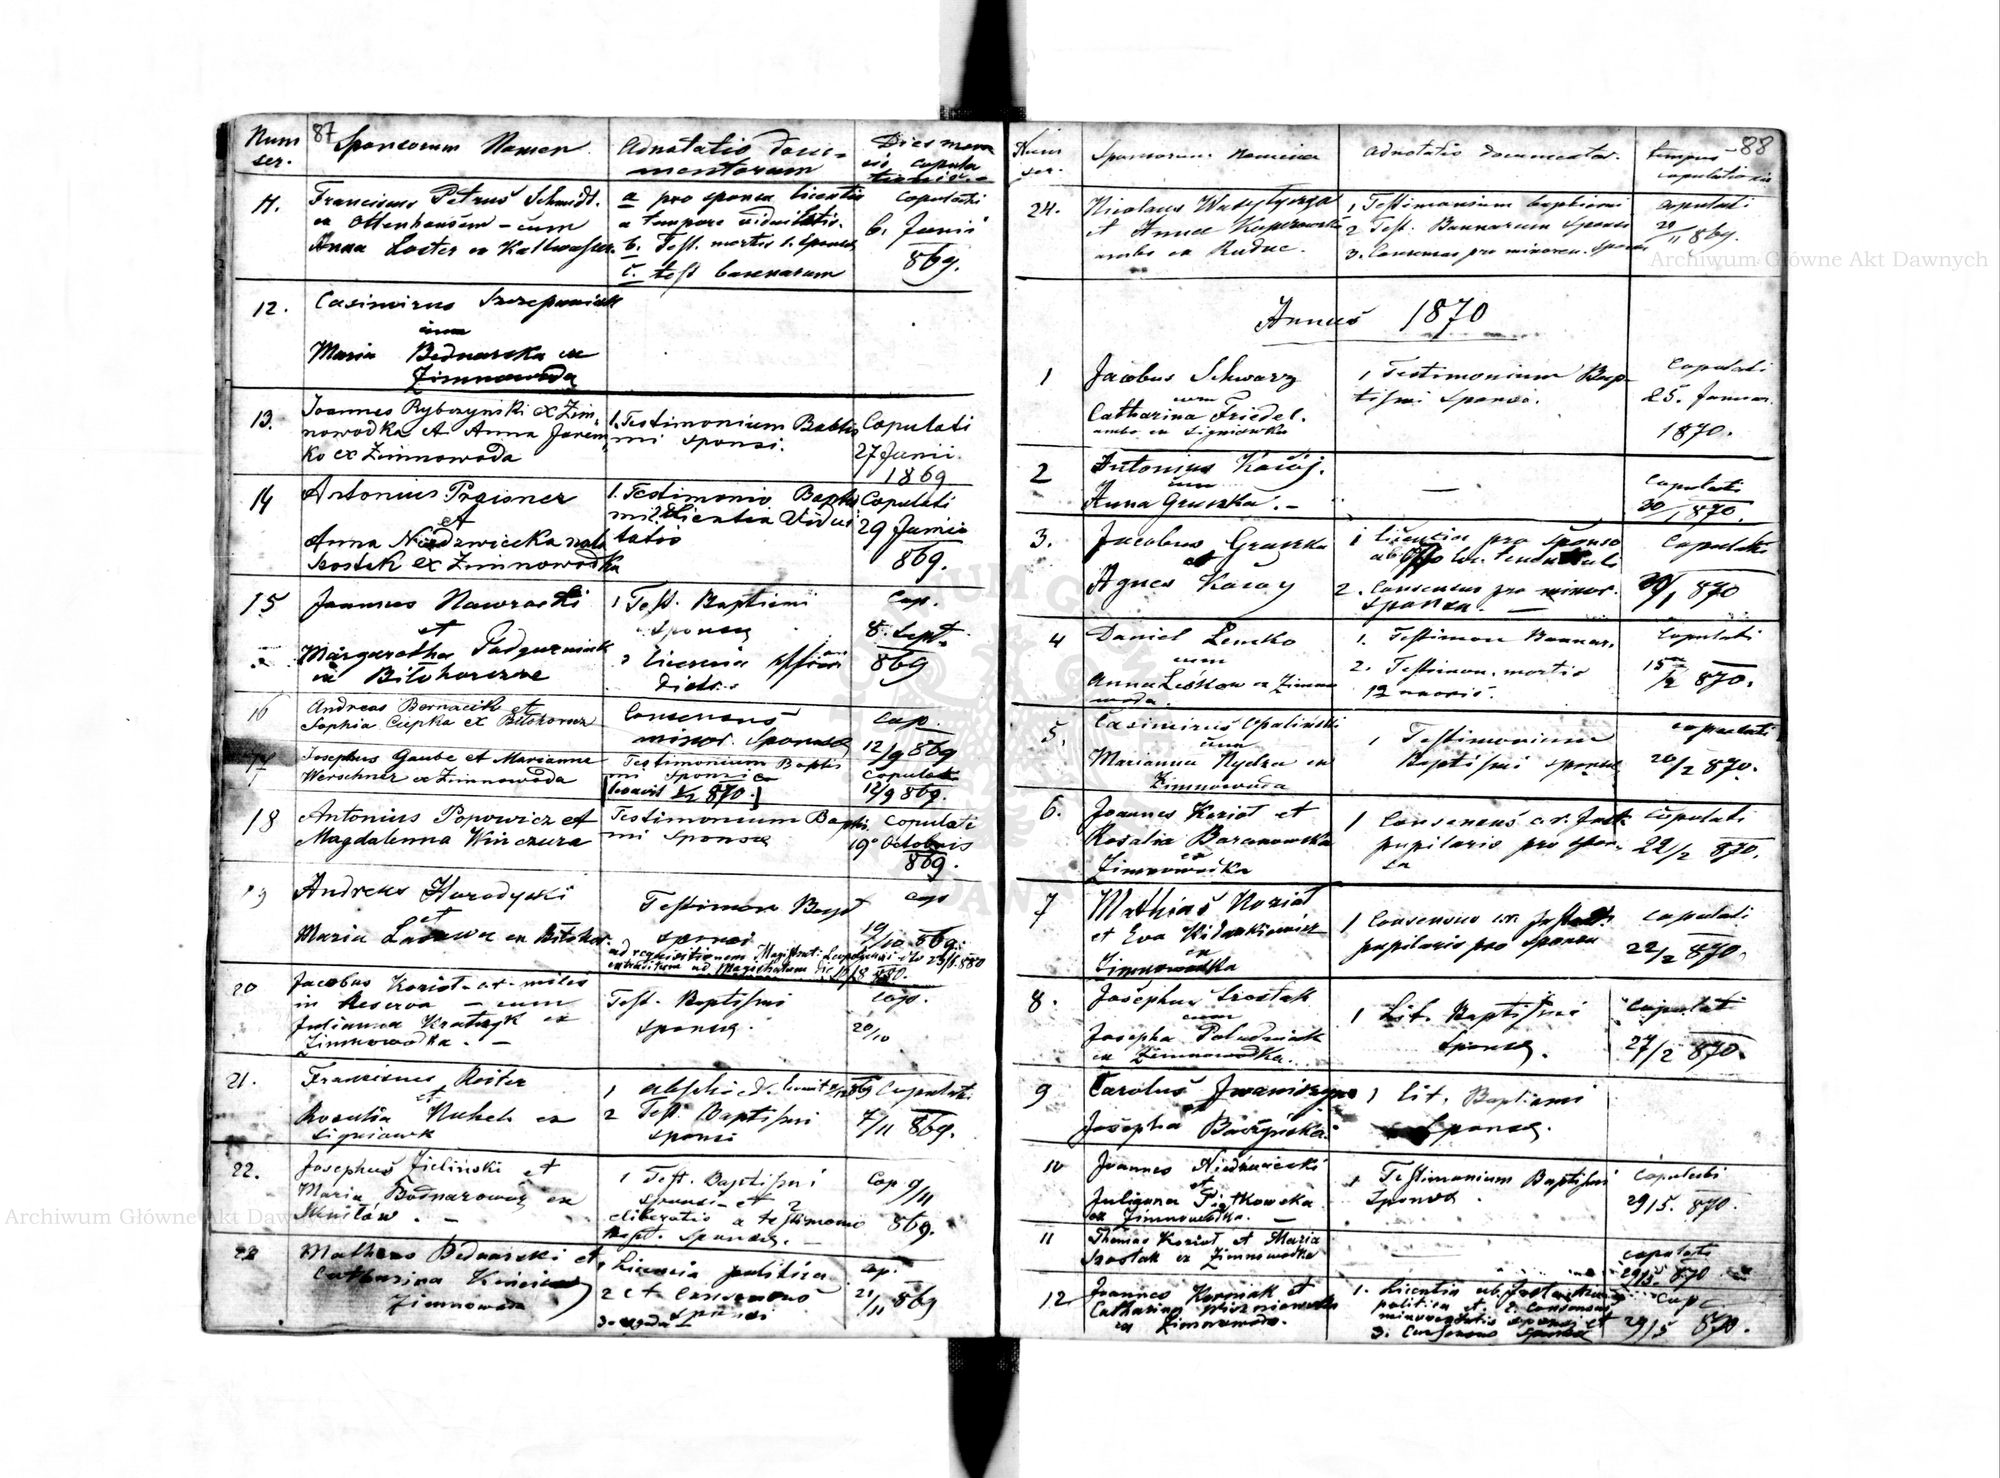 87
Num
ser.
Sponsorum Nomen
Adnotatio docu-
mentorum
Dies men
sis copula
tionis
11.
Franciscus Petrus Schmidt.
ex Ottenhausen - cum
Anna Loeter ex Kaltwasser
a pro sponsa licentia
a tempore viduitatis.
b. Test. mortis 1. Sponsi
c. test bannarum
Copulati
6. Junii
869.
12.
Casimirus Szczepaniak
cum
Maria Bednarska ex
Zimnowoda
13.
Joannes Rybczyński ex Zim-
nowodka et Anna Jarem-
ko ex Zimnowoda
1. Testimonium Babtis
mi sponsi.
Copulati
27 Junii.
1869
14
Antonius Prajsner
et
Anna Niedzwiecka nata
Szostak ex Zimnowodka
1. Testimonio Baptis
mi 2. Licentia Vidui
tatis
Copulati
29 Junii
869.
15
Joannes Nawrocki
et
Margaretha Padgurniak
ex Biłohorszcze
1 Test. Baptismi
sponsę
2 licencia
Copul.
8. Sept.
869
16
Andreas Bernacik et
Sophia Ciepka ex Biłohorszcz
Consensus
minor. Sponsę
Cop.
12/9 869
17
Josephus Gaube et Marianna
Werschner ex Zimnowoda
Testimonium Baptis
mi sponsi
870.
Copulati
12/9 869.
18
Antonius Popowicz et
Magdalenna Winczura
Testimonium Baptis
mi sponsę
Copulati
19 Octobris
869.
19
Andreas Horodyski
et
Maria ex Biłohor.
Testimon Bapt
sponsi
ad requisitionem Magistrat:
extraditum ad Magistratum
cop
19
/10 869.
20
Jacobus Koziot et miles
in Reserva - cum
Julianna Kratczyk ex
Zimnowodka. -
Test. Baptismi
sponsę.
cop.
20/10
21.
Franciscus Reiter
et
Rosalia Huheh ex
Signiowk
1 Abschied.
2 Test. Baptismi
sponsi
Copulati
7/11 869.
22.
Josephus Zieliński et
Maria Bodnarowicz ex
Skniłów. -
1 Test. Baptismi
sponsi - et 2
deliberatio a testimonio
Bapt. Sponsę. -
Cop 9/11
869.
23
Matheus Bednarski et
Catharina
Zimnowoda
1 Licencia politica
2 et Consensus
sponsi
cop.
21/11 869
88
Num
ser.
Sponsorum Nomina
Adnotatio documentor.
tempus
copulationis
24.
Nicolaus Wasylyczga
et Anna Kuperowska
ambo ex Rudno.
1 Testimonium baptismi
2 Test. Bannarum Sponsi
3. Consensus pro minoren. Sponsi
copulati
29/11 869.
Annus 1870
1
Jacobus Schwarz
cum
Catharina Friedel.
ambo ex Signiowka
1 Testimonium Bap-
tismi Sponsi.
Copulati
25. Januar.
1870.
2
Antonius Kacój.
cum
Anna Gruszka. -
—
Copulati
30/1 870.
3.
Jacobus Gruszka
et
Agnes Kacoy
1 licencia pro sponso
2. Consensus pro minor.
sponsa. —
Copulati
30/1 870
4
Daniel Lemko
cum
Anna Leśkow ex Zimno
woda.
1. Testimon Bannar.
2. Testimon. mortis
Copulati
15/2 870.
5.
Casimirus Opaliński
cum
Marianna Rydza ex
Zimnowoda
1 Testimonium
Baptismi sponsę
copulati
20/2 870.
6.
Joannes Koziot et
Rosalia Baranowska
ex
Zimnowodka
1 Consensus c.r. Judi
pupilaris pro spon-
sa
Copulati
22/2 870.
7
Mathias Koziot
et Eva
ex
Zimnowodka
1 Consensus c.r. Judi
pupilaris pro sponsa
copulati
22/2 870.
8.
Josephus Szostak
cum
Josepha Paludniak
ex Zimnowodka.
1 Lit. Baptismi
Sponsę.
Copulati
27/2 870.
9
Carolus Iwaniszyn
et
Josepha Baczyńska
1 lit. Baptismi
Sponsę.
10
Joannes Niedźwiecki
et
Julianna Piątkowska
ex Zimnowodka.
1 Testimonium Baptismi
Sponsę.
Copulati
29/5. 870.
11
Thomas Koziot et Maria
Szostak ex Zimnowodka
copulati
29/5. 870
12
Joannes et
Catharina
ex Zimnowoda.
1. Licentia ab
politica et 2. Consensus
minorenitatis sponsi et
3. Consensus sponsae
Cop.
29/5 870.
Archiwum Główne Akt Dawnych
Archiwum Główne Akt Dawnych